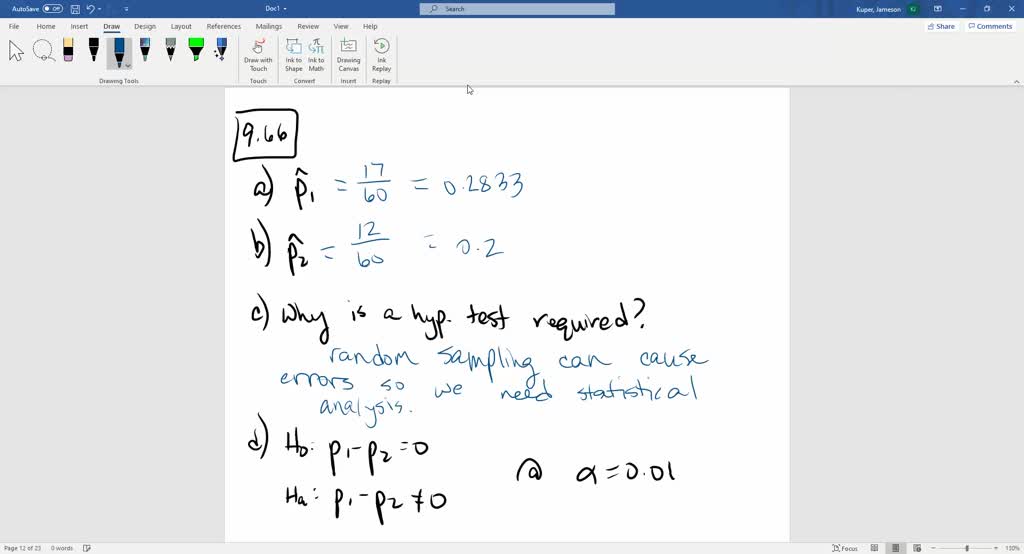 AutoSave Off
Doc1
Search
Kuper, Jameson
KJ
File Home Insert Draw Design Layout References Mailings Review View Help
Share Comments
Draw with Touch
Ink to Shape
Ink to Math
Drawing Canvas
Ink Replay
Drawing Tools Touch Convert Insert Replay
9.66
a) p̂₁ = 17/60 = 0.2833
b) p̂₂ = 12/60 = 0.2
c) Why is a hyp. test required?
random sampling can cause
errors so we need statistical
analysis.
d) H₀: p₁-p₂=0
@ α=0.01
Ha: p₁-p₂≠0
Page 12 of 23 0 words
Focus
110%